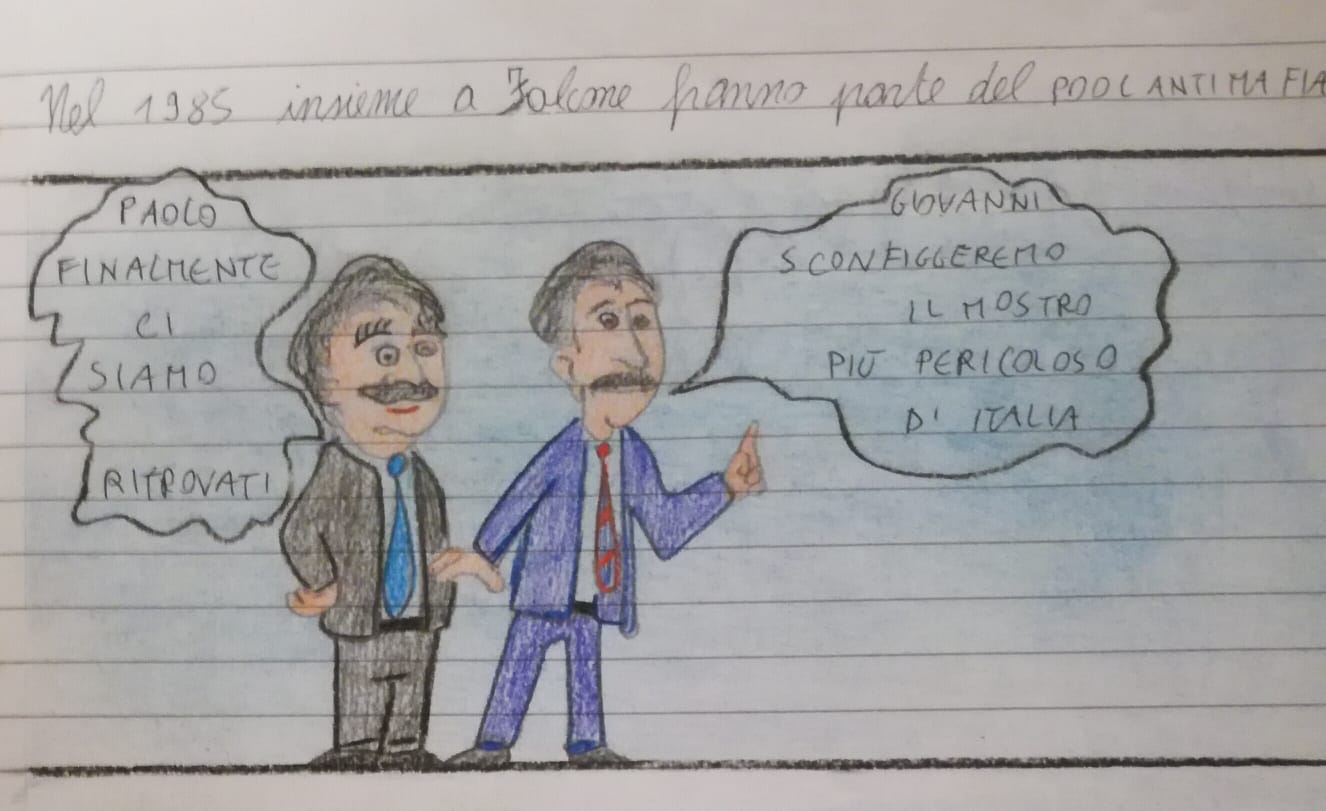 Nel 1985 insieme a Falcone fanno parte del POOL ANTIMAFIA
PAOLO
FINALMENTE
CI
SIAMO
RITROVATI
GIOVANNI
SCONFIGGEREMO
IL MOSTRO
PIÙ PERICOLOSO
D' ITALIA